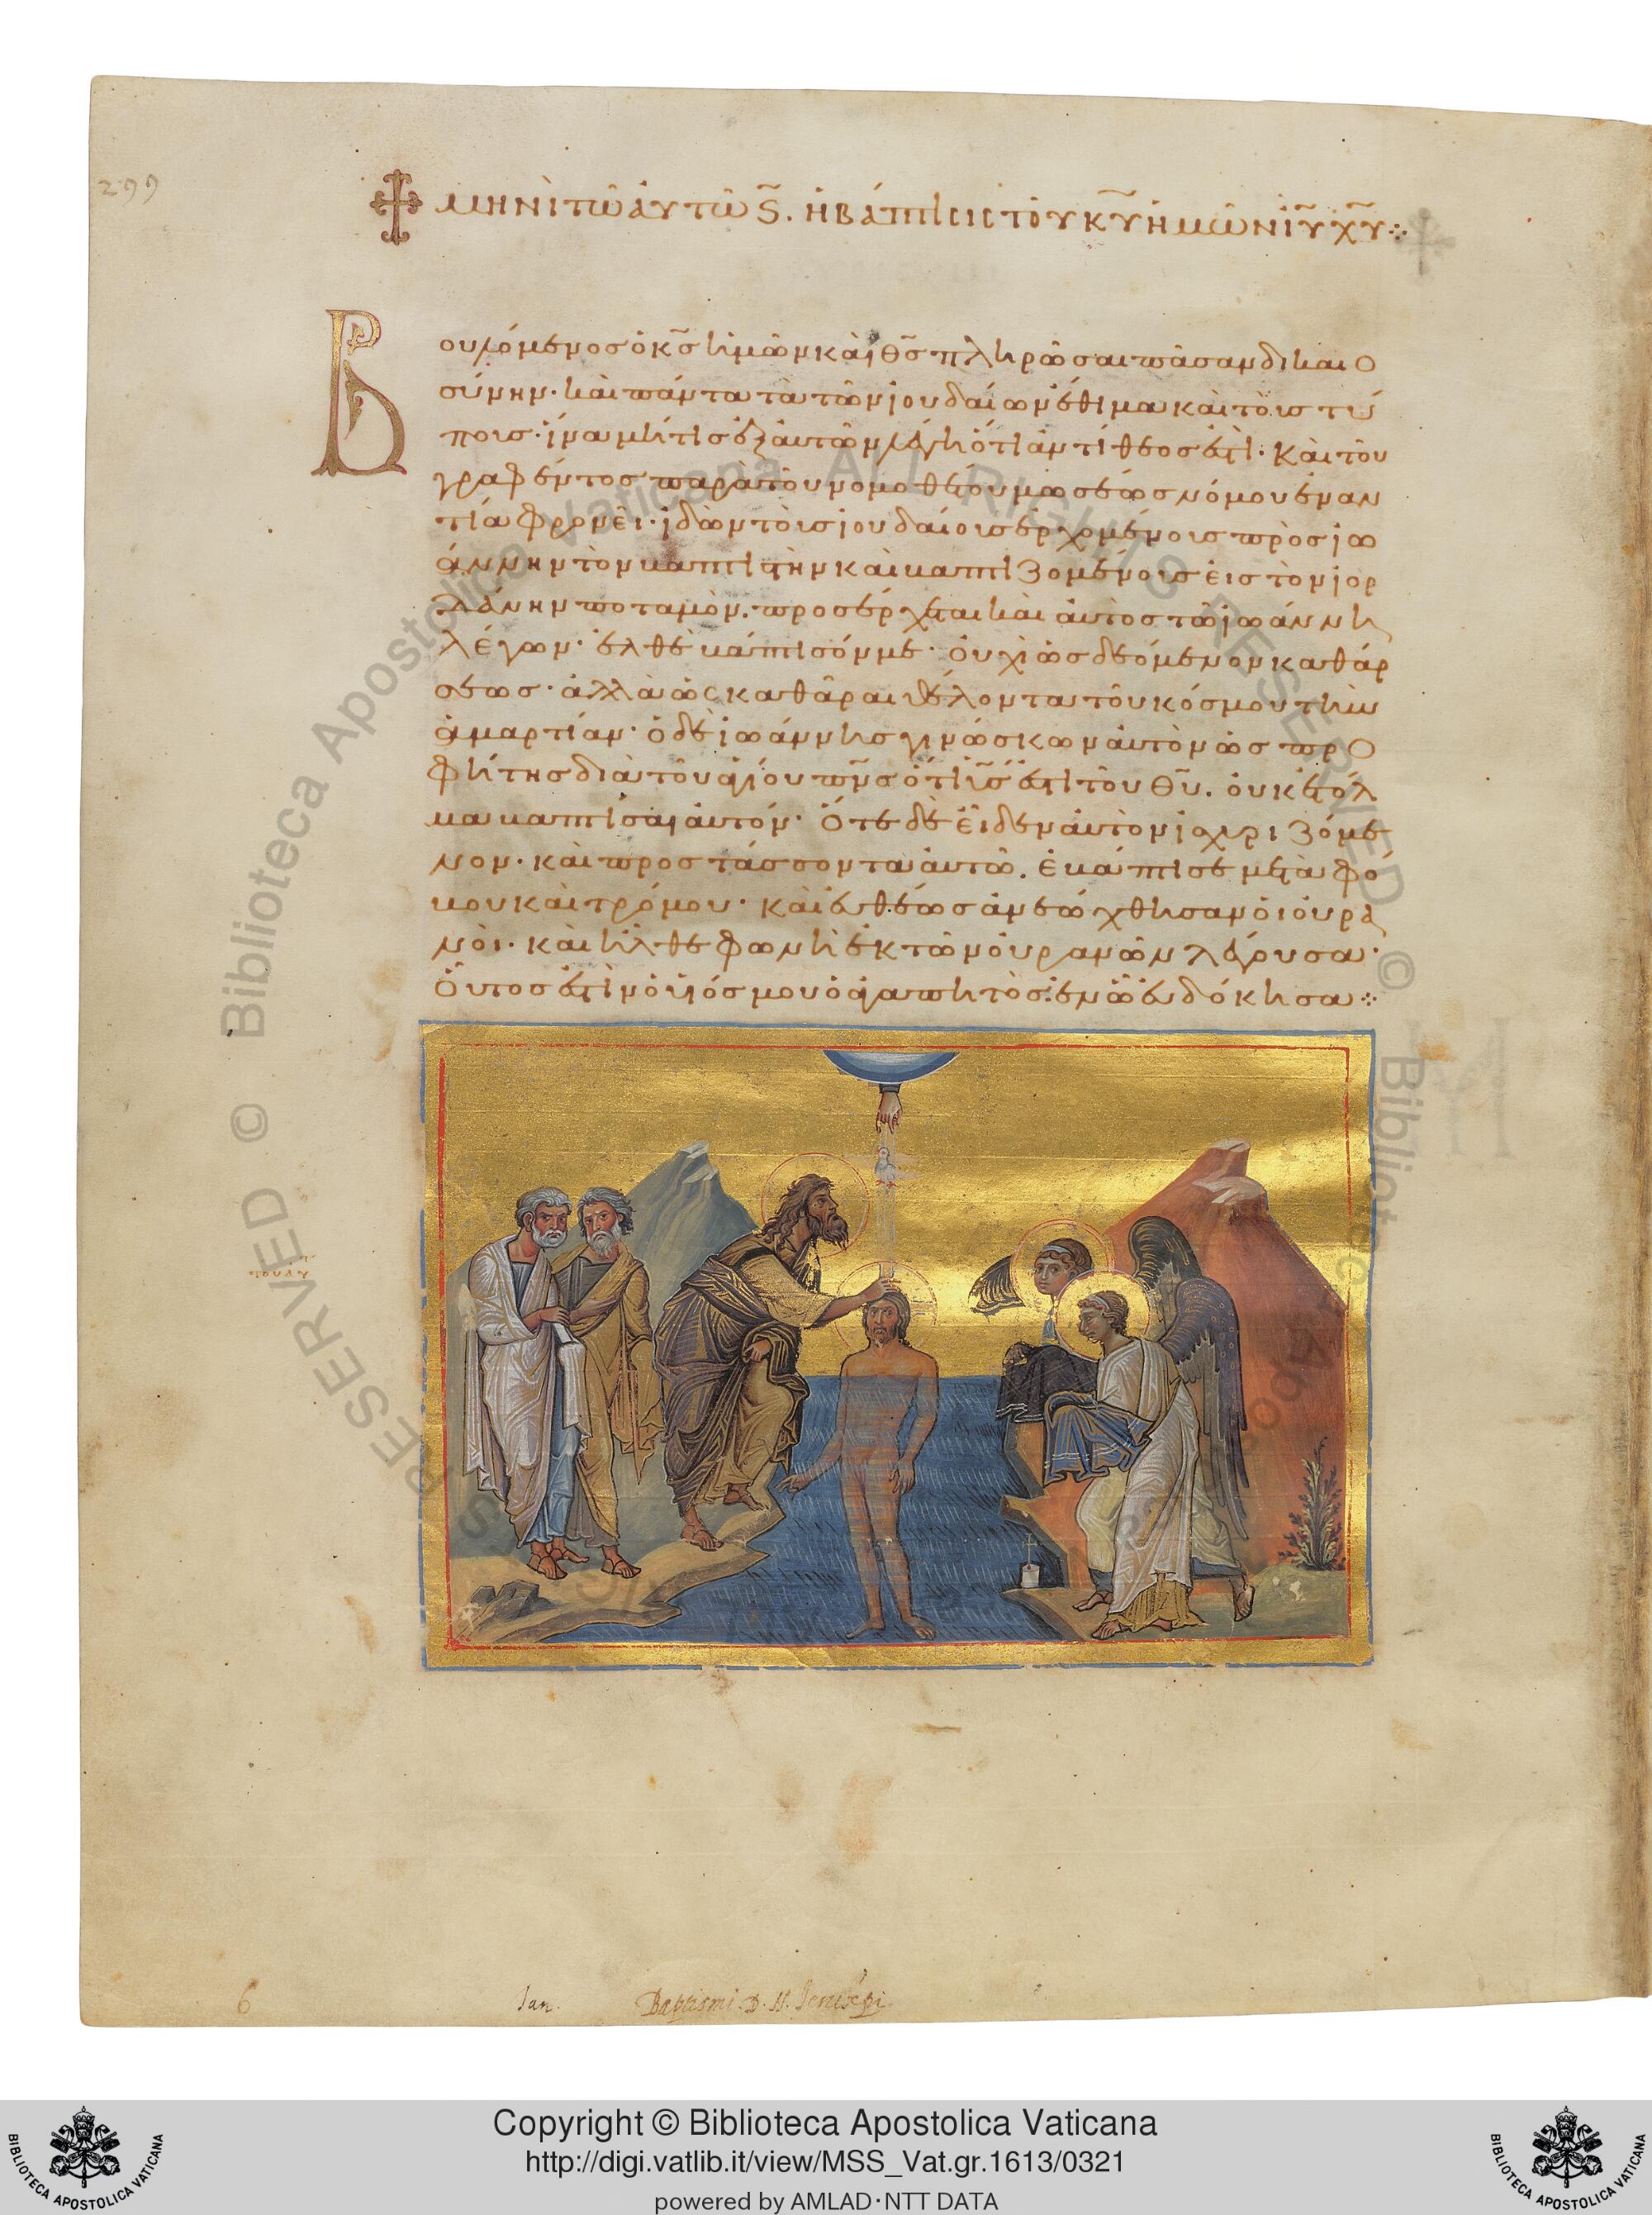 299
μηνὶ τῶ ἀυτῶ ϛ. ἡ βάπτισις τοῦ κ̅υ̅ ἡμῶν ἰ̅υ̅ χ̅υ̅ ⁘
Βουλόμενος ὁ κ̅ς̅ ἡμῶν καὶ θ̅ς̅ πληρῶσαι πᾶσαν δικαιο
σύνην· καὶ πάντα τὰ τῶν ἰουδαίων ἔθιμα καὶ τοῖς τύ
ποις· ἵνα μή τις ἐξ ἀυτῶν λέγη ὅτι ἀντίθεός ἐστι· καὶ τοῦ
γραφέντος παρὰ τοῦ νομοθέτου μωσέως νόμου ἐναν
τία φρονεῖ· ἰδὼν τοῖς ἰουδαίοις ἐρχομένοις πρὸς ἰω
άννην τὸν βαπτιστὴν καὶ βαπτιζομένοις ἐις τὸν ἰορ
δάνην ποταμὸν. προσέρχεται καὶ ἀυτὸς τῶ ἰωάννη
λέγων· ἐλθὲ βάπτισόν με· ὀυχὶ ὡς δεόμενον καθάρ
σεως· ἀλλὰ ὡς καθᾶραι θέλοντα τοῦ κόσμου τὴν
ἁμαρτίαν· ὁ δὲ ἰωάννης γινώσκων ἀυτὸν ὡς προ
φήτης διὰ τοῦ ἁγίου π̅ν̅ς̅ ὅτι υ̅ς̅ ἐστι τοῦ θ̅υ̅. ὀυκ ἐτόλ
μα βαπτίσαι ἀυτόν· Ὅτε δὲ εἶδεν ἀυτὸν ἰσχυριζόμε
νον· καὶ προστάσσοντα ἀυτῶ. ἐβάπτισε μετὰ φό
βου καὶ τρόμου· καὶ ἐυθέως ἀνεώχθησαν ὁι ὀυρα
νοὶ· καὶ ἦλθε φωνὴ ἐκ τῶν ὀυρανῶν λέγουσα·
Ὁῦτός ἐστιν ὁ υἱός μου ὁ ἀγαπητὸς· ἐν ὧ ἐυδόκησα ⁘
6
Jan.
Baptismi D. N.
© Biblioteca Apostolica Vaticana ALL RIGHTS RESERVED ©
Copyright © Biblioteca Apostolica Vaticana
http://digi.vatlib.it/view/MSS_Vat.gr.1613/0321
powered by AMLAD·NTT DATA
BIBLIOTECA APOSTOLICA VATICANA
BIBLIOTECA APOSTOLICA VATICANA